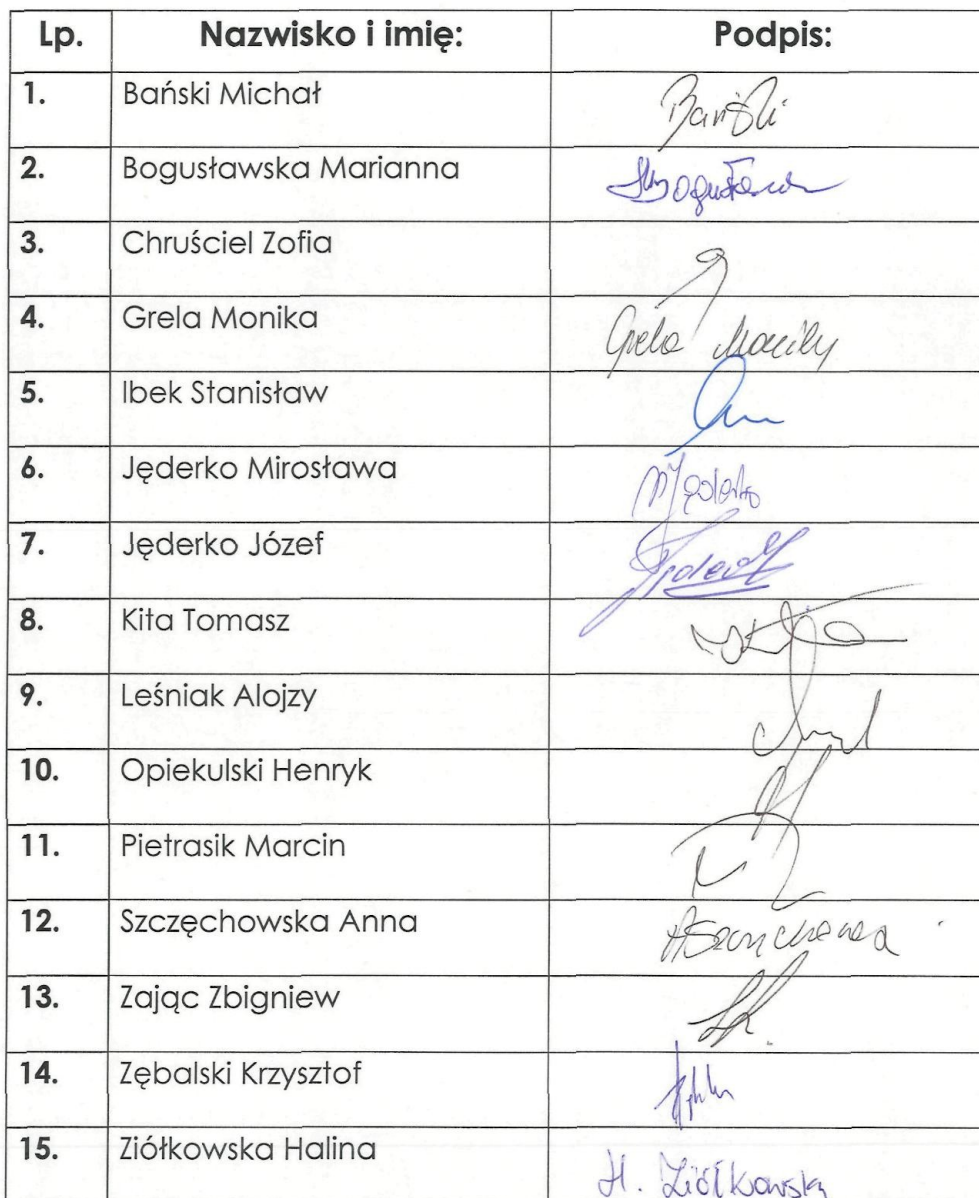 Lp. Nazwisko i imię: Podpis:
1. Bański Michał Bański
2. Bogusławska Marianna
3. Chruściel Zofia
4. Grela Monika Grela
5. Ibek Stanisław
6. Jęderko Mirosława M Jęderko
7. Jęderko Józef
8. Kita Tomasz
9. Leśniak Alojzy
10. Opiekulski Henryk
11. Pietrasik Marcin
12. Szczęchowska Anna
13. Zając Zbigniew
14. Zębalski Krzysztof
15. Ziółkowska Halina H. Ziółkowska